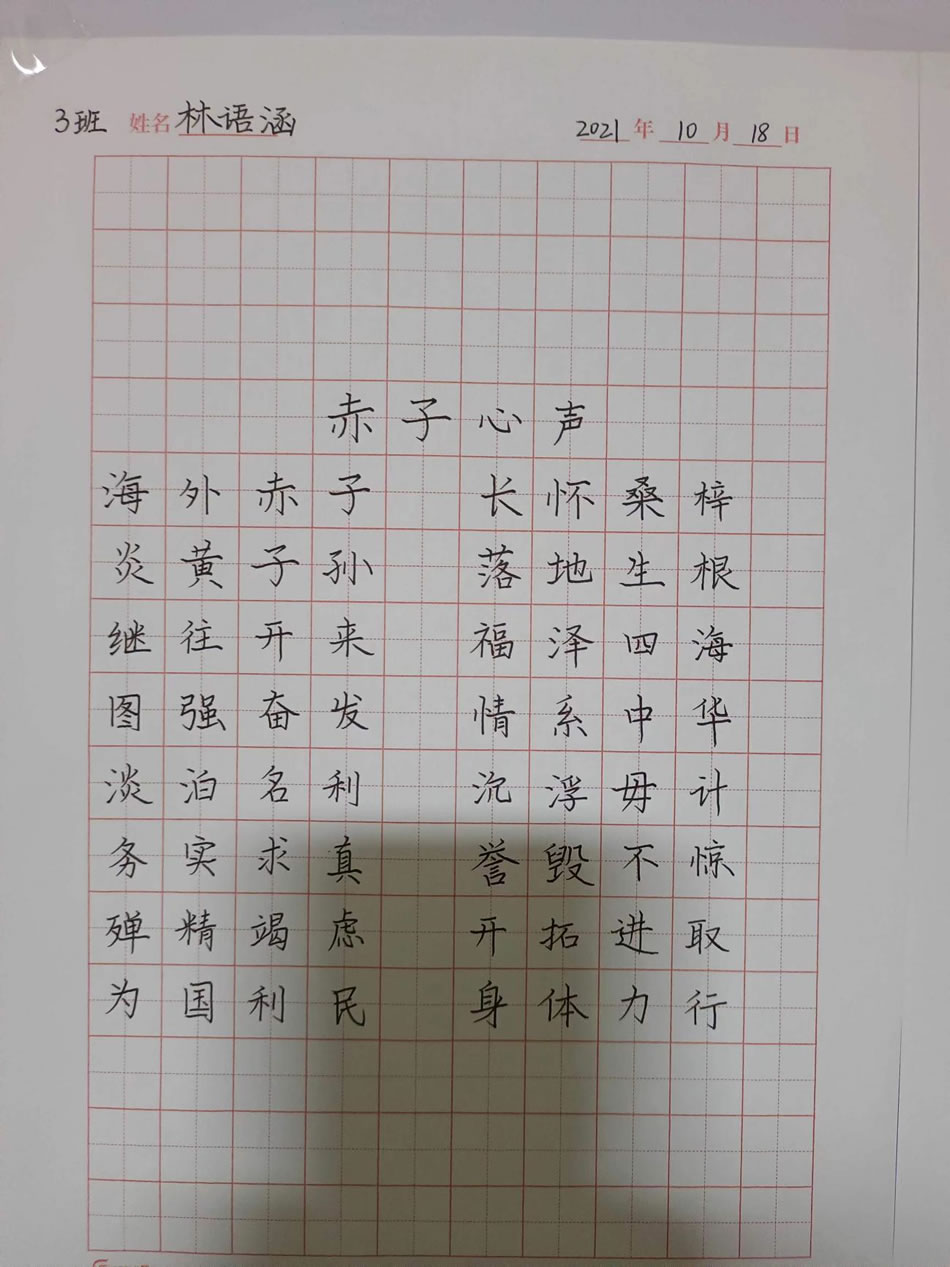 3班 姓名 林语涵 2021年10月18日
赤子心声
海外赤子 长怀桑梓
炎黄子孙 落地生根
继往开来 福泽四海
图强奋发 情系中华
淡泊名利 沉浮毋计
务实求真 誉毁不惊
殚精竭虑 开拓进取
为国利民 身体力行